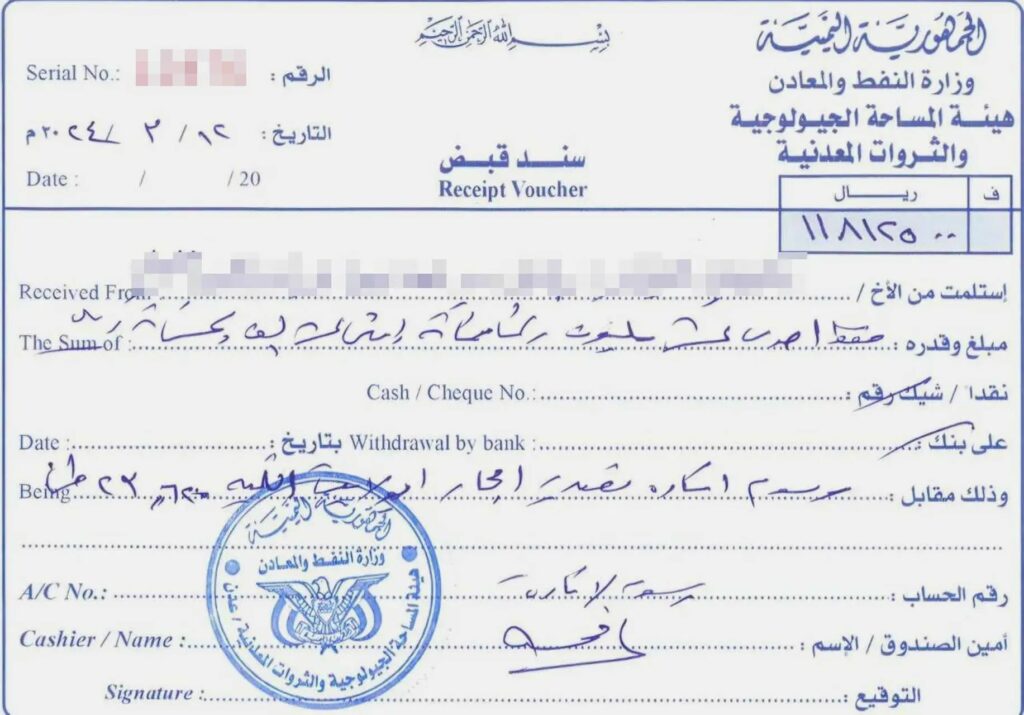 بسم الله الرحمن الرحيم
الجمهورية اليمنية
وزارة النفط والمعادن
هيئة المساحة الجيولوجية
والثروات المعدنية
Serial No.: الرقم :
التاريخ : ١٢ / ٣ / ٢٠٢٤ م
Date : / / 20
سند قبض
Receipt Voucher
ف ريال
١١٨١٢٥٠٠
Received From إستلمت من الأخ /
The Sum of : مبلغ وقدره : فقط احدى عشر مليون وثمانمائة إثنى عشر الف وخمسمائة ريال
Cash / Cheque No.: نقدا / شيك رقم :
Date : بتاريخ : Withdrawal by bank : على بنك :
Being وذلك مقابل : رسوم تصدير احجار الكمية ٢٣ طن
A/C No.: رقم الحساب :
Cashier / Name : أمين الصندوق / الإسم :
Signature : التوقيع :
الجمهورية اليمنية
وزارة النفط والمعادن
هيئة المساحة الجيولوجية والثروات المعدنية / عدن